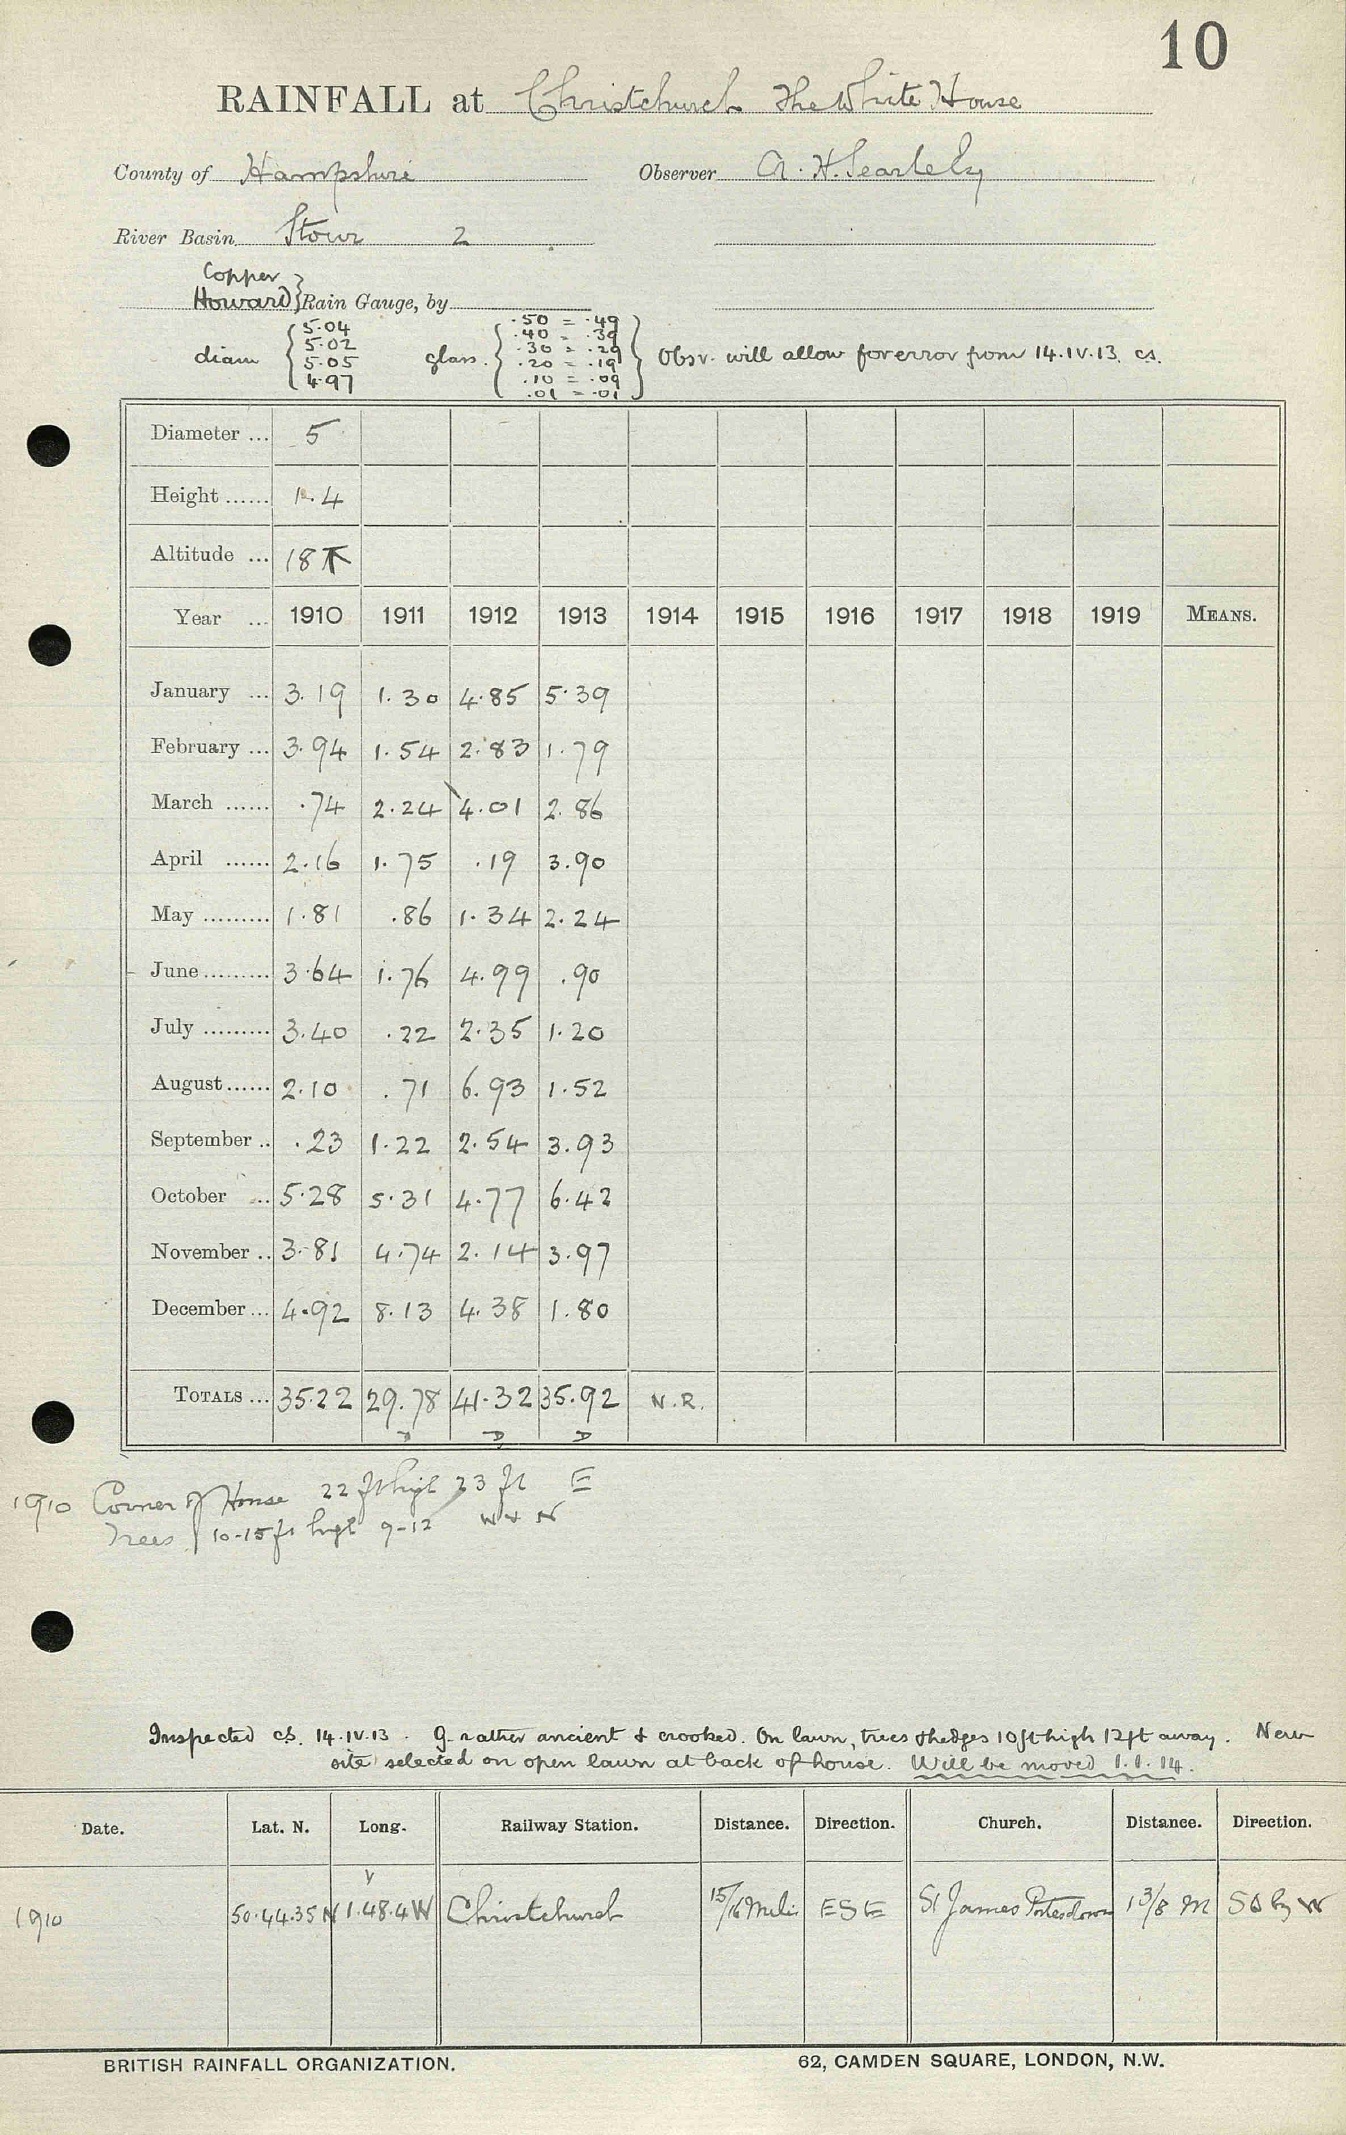 10
RAINFALL at Christchurch The White House
County of Hampshire Observer A. H. Searle Esq
River Basin Stour 2
Copper
Howard } Rain Gauge, by
diam { 5.04 5.02 5.05 4.97 glass. { .50 = .49 .40 = .39 .30 = .29 .20 = .19 .10 = .09 .01 = .01 } Obsr. will allow for error from 14.IV.13. cs.
Diameter ... 5
Height ...... 1.4
Altitude ... 18
Year ... 1910 1911 1912 1913 1914 1915 1916 1917 1918 1919 MEANS.
January ... 3.19 1.30 4.85 5.39
February ... 3.94 1.54 2.83 1.79
March ...... .74 2.24 4.01 2.86
April ...... 2.16 1.75 .19 3.90
May ......... 1.81 .86 1.34 2.24
June ......... 3.64 1.76 4.99 .90
July ......... 3.40 .22 2.35 1.20
August ...... 2.10 .71 6.93 1.52
September .. .23 1.22 2.54 3.93
October ... 5.28 5.31 4.77 6.42
November .. 3.81 4.74 2.14 3.97
December ... 4.92 8.13 4.38 1.80
TOTALS ... 35.22 29.78 41.32 35.92 N.R.
D D D
1910 Corner of House 22 ft high 23 ft E
Trees 10-15 ft high 9-12 W & N
Inspected cs. 14.IV.13. G. rather ancient & crooked. On lawn, trees & hedges 10 ft high 12 ft away. New
site selected on open lawn at back of house. Will be moved 1.1.14.
Date. Lat. N. Long. Railway Station. Distance. Direction. Church. Distance. Direction.
1910 50.44.35 N 1.48.4 W Christchurch 15/16 Mile ESE St James 1 3/8 M S by W
BRITISH RAINFALL ORGANIZATION. 62, CAMDEN SQUARE, LONDON, N.W.